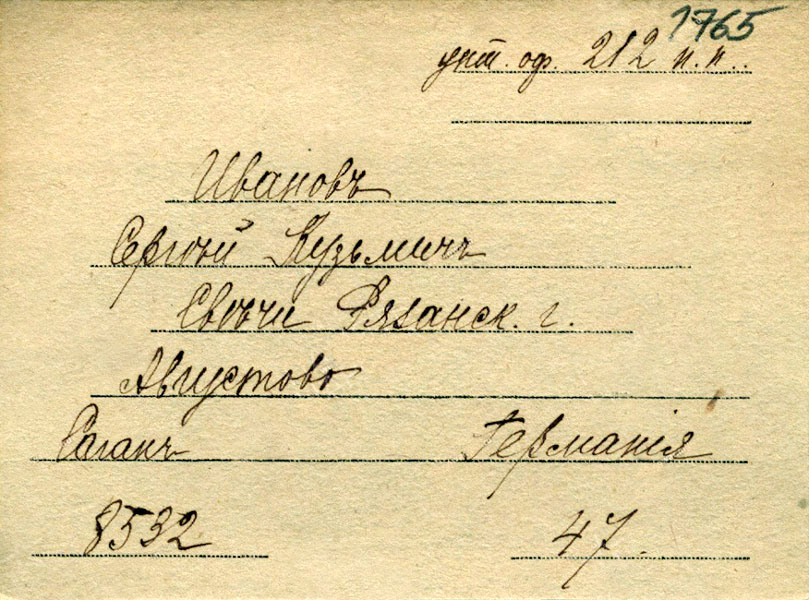 1765
унт. оф. 212 п. п..
Ивановъ
Сергѣй Кузьмичъ
Рязанск. г.
Августово
Саганъ Германія
8532 47.